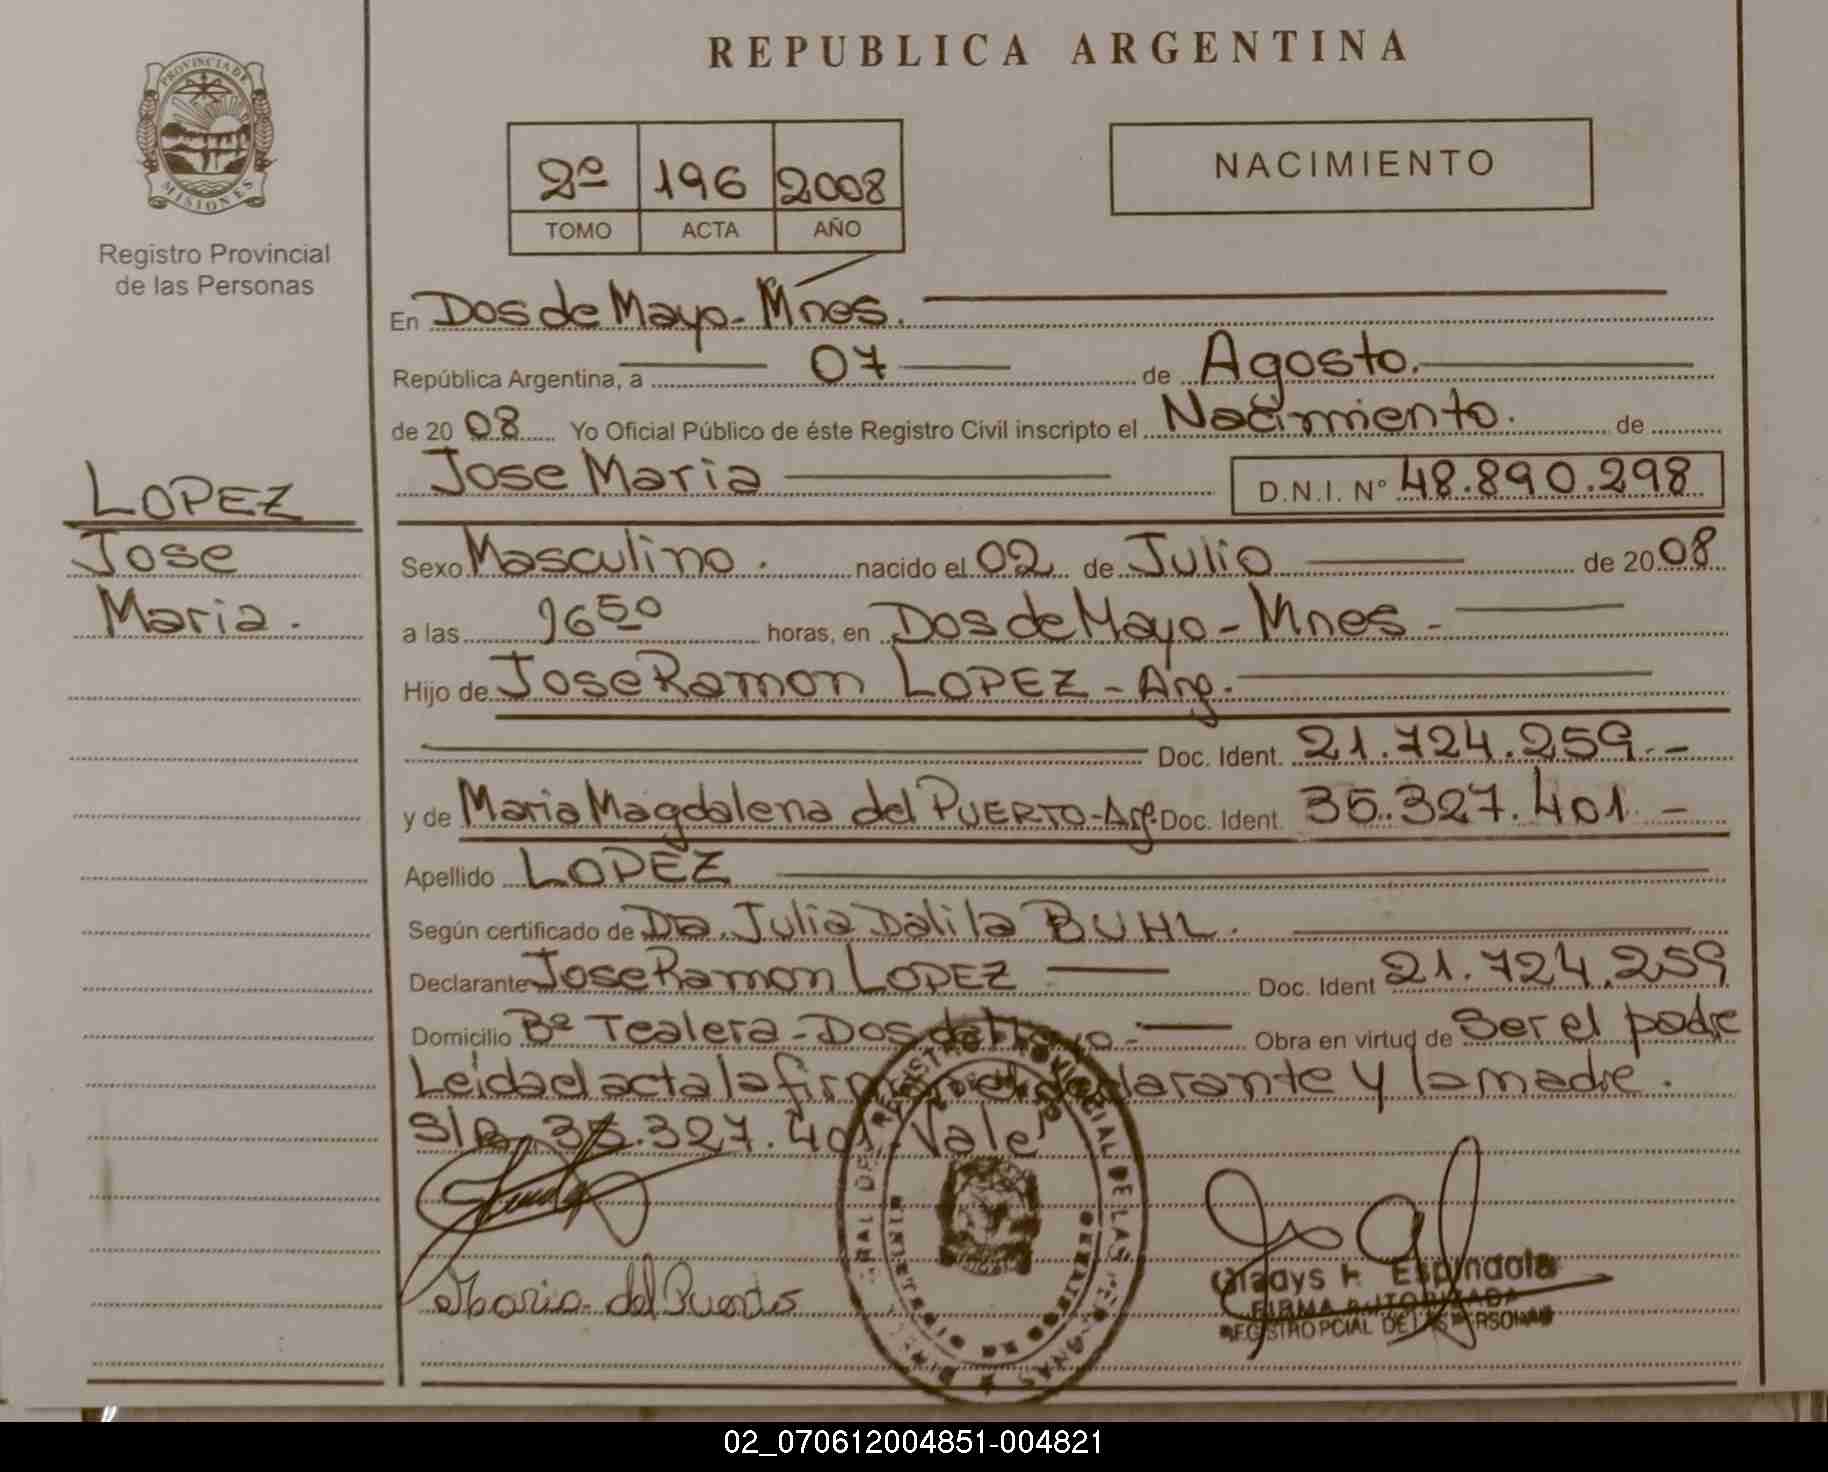 REPUBLICA ARGENTINA
PROVINCIA DE
MISIONES
Registro Provincial
de las Personas
2º 196 2008
TOMO ACTA AÑO
NACIMIENTO
En Dos de Mayo - Mnes.
República Argentina, a 07 de Agosto.
de 20 08 Yo Oficial Público de éste Registro Civil inscripto el Nacimiento. de
Jose Maria D.N.I. Nº 48.890.298
LOPEZ
Jose
Maria.
Sexo Masculino. nacido el 02 de Julio de 20 08
a las 1650 horas, en Dos de Mayo - Mnes -
Hijo de Jose Ramon LOPEZ - Arg.
Doc. Ident. 21.724.259.-
y de Maria Magdalena del PUERTO - Arg. Doc. Ident. 35.327.401 -
Apellido LOPEZ
Según certificado de Dra. Julia Dalila BUHL.
Declarante Jose Ramon LOPEZ Doc. Ident 21.724.259
Domicilio Bº Tealera - Dos de Mayo - Obra en virtud de Ser el padre
Leida el acta la firman el declarante y la madre.
S/R 35.327.401 Vale
Maria del Puerto
Gladys F. Espindola
FIRMA AUTORIZADA
REGISTRO PCIAL DE LAS PERSONAS
02_070612004851-004821